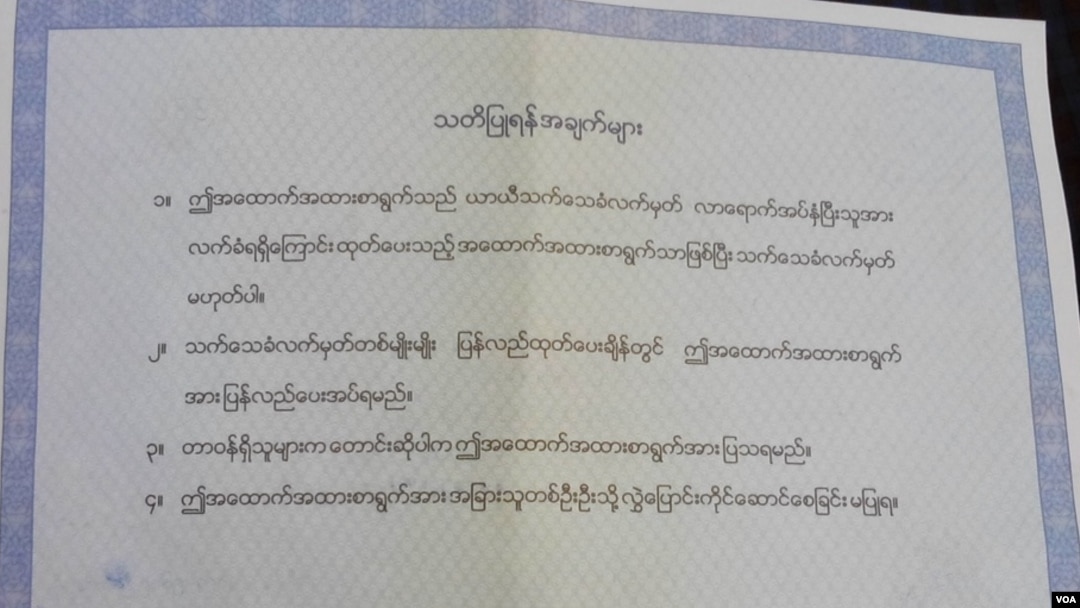 သတိပြုရန်အချက်များ
၁။ ဤအထောက်အထားစာရွက်သည် ယာယီသက်သေခံလက်မှတ် လာရောက်အပ်နှံပြီးသူအား
လက်ခံရရှိကြောင်း ထုတ်ပေးသည့် အထောက်အထားစာရွက်သာဖြစ်ပြီး သက်သေခံလက်မှတ်
မဟုတ်ပါ။
၂။ သက်သေခံလက်မှတ်တစ်မျိုးမျိုး ပြန်လည်ထုတ်ပေးချိန်တွင် ဤအထောက်အထားစာရွက်
အား ပြန်လည်ပေးအပ်ရမည်။
၃။ တာဝန်ရှိသူများက တောင်းဆိုပါက ဤအထောက်အထားစာရွက်အား ပြသရမည်။
၄။ ဤအထောက်အထားစာရွက်အား အခြားသူတစ်ဦးဦးသို့ လွှဲပြောင်းကိုင်ဆောင်စေခြင်း မပြုရ။
VOA